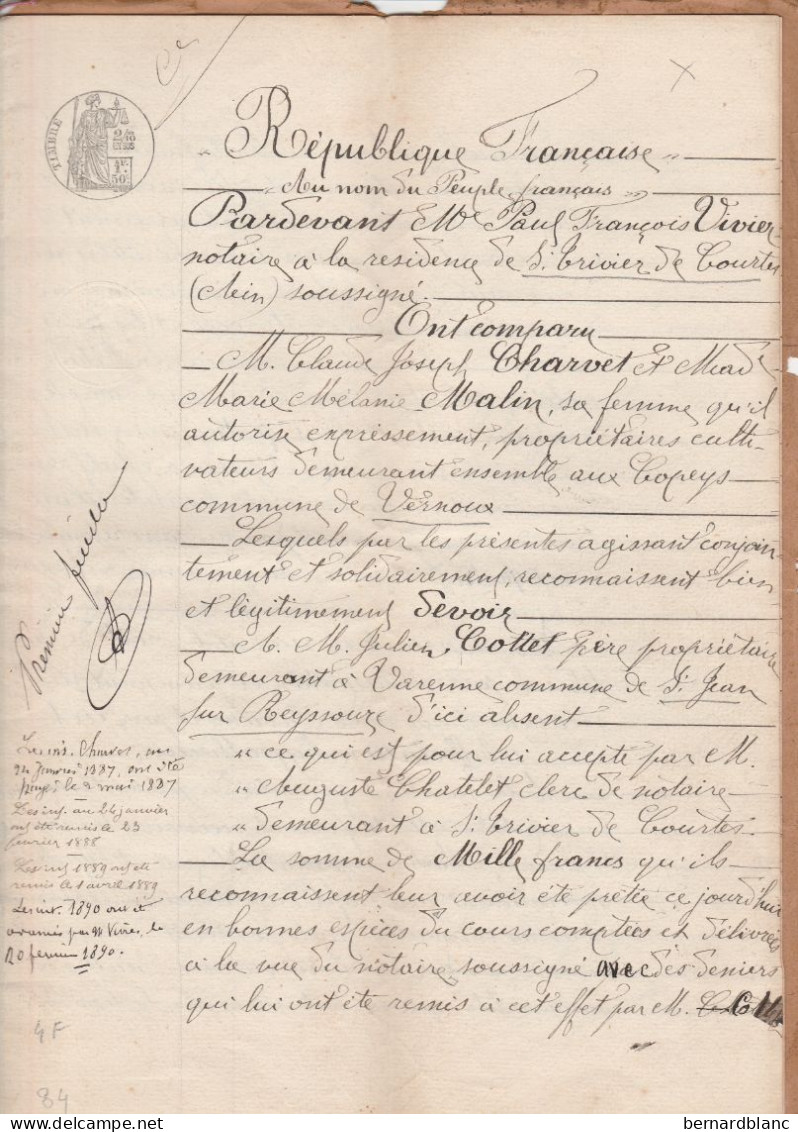 TIMBRE
2/10
EN SUS
1F
50c
" République Française "
" Au nom du Peuple français "
Pardevant Me Paul François Vivier
notaire à la residence de St. Trivier de Courtes
(Ain) soussigné.
Ont comparu
M. Claude Joseph Charvet et Made
Marie Mélanie Malin, sa femme qu'il
autorise expressement, propriétaires culti-
vateurs demeurant ensemble aux Copeys
commune de Vernoux
Lesquels par les présentes agissant conjoin-
tement et solidairement, reconnaissent bien
et légitimement devoir
A. M. Julien Collet père propriétaire
demeurant à Varenne commune de St. Jean
sur Reyssouze d'ici absent
" ce qui est pour lui accepté par M.
" Auguste Chatelet clerc de notaire
" demeurant à St. Trivier de Courtes.
La somme de Mille francs qu'ils
reconnaissent leur avoir été prêtée ce jourd'hui
en bonnes espèces du cours comptées et délivrées
à la vue du notaire soussigné avec des deniers
qui lui ont été remis à cet effet par M. Collet
Premier
janvier 1887, ont été
payés le 2 mai 1887
Les int. au 24 janvier
ont été remis le 23
février 1888
Les int. 1889 ont été
remis le 1 avril 1889
Les int. 1890 ont été
par M Vivier, le
20 février 1890.
4F
84
bernardblanc